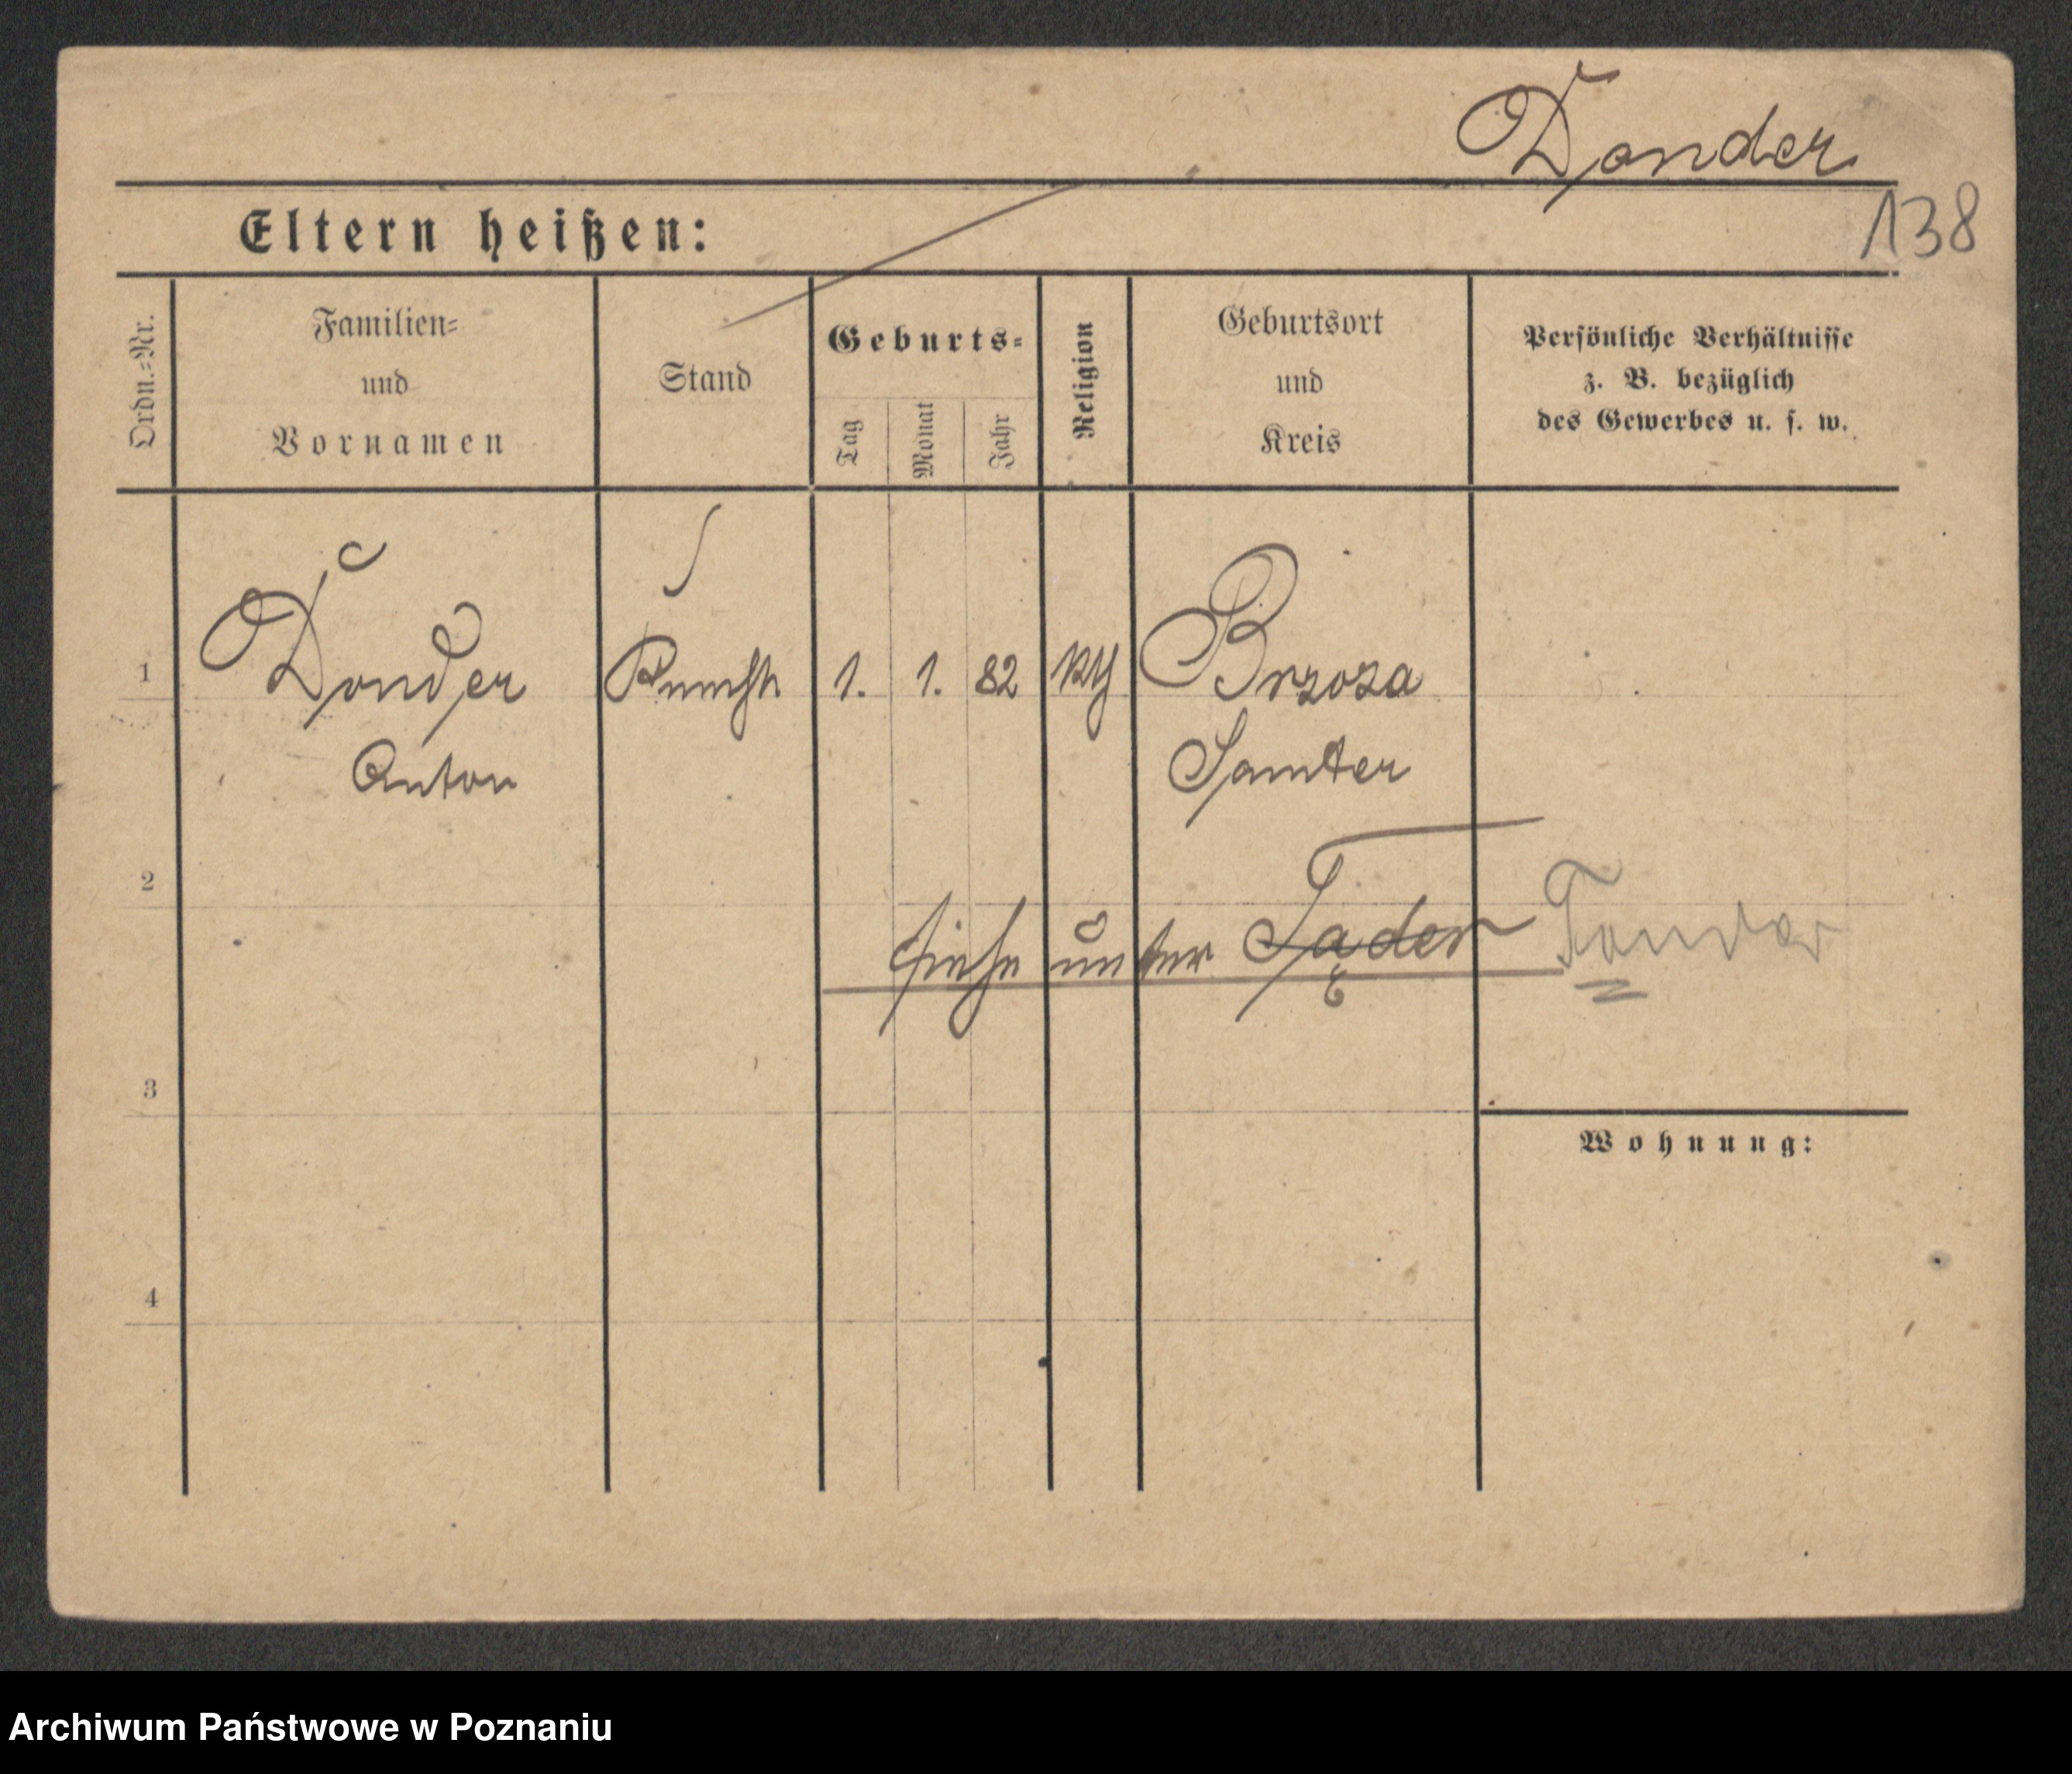 Donder
138
Eltern heißen:
Ordn.-Nr.
Familien-
und
Vornamen
Stand
Geburts-
Tag
Monat
Jahr
Religion
Geburtsort
und
Kreis
Persönliche Verhältnisse
z. B. bezüglich
des Gewerbes u. s. w.
1
Donder
Anton
Knecht
1. 1. 82
Brzoza
Samter
2
siehe unter Tąder Tonder
3
Wohnung:
4
Archiwum Państwowe w Poznaniu